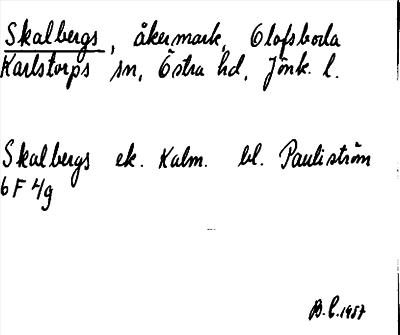 Skalbergs, åkermark, Olofsboda
Karlstorps sn, Östra hd, Jönk. l.
Skalbergs ek. Kalm. bl. Pauliström
6 F 4/g
B.L. 1957